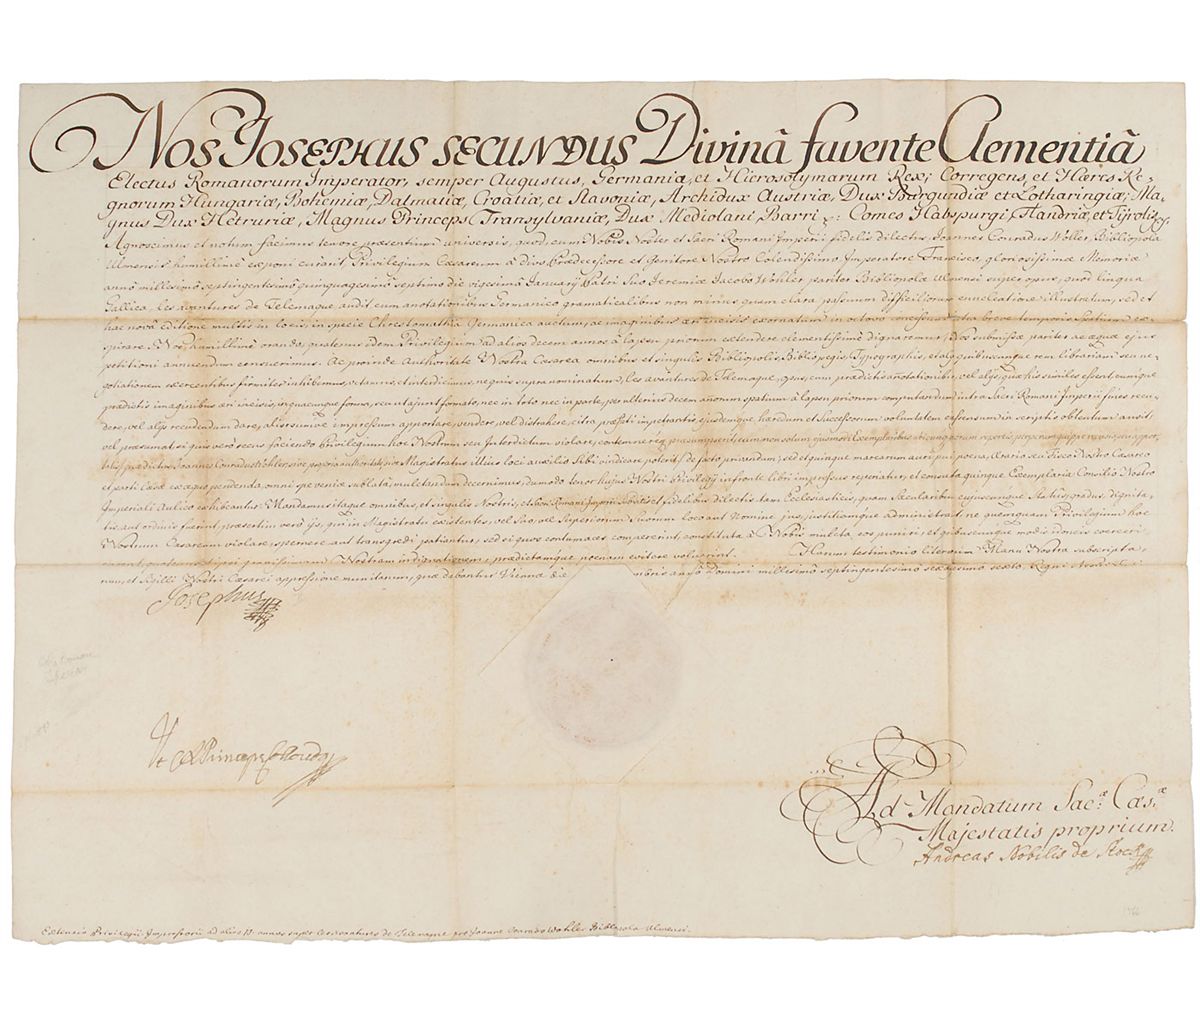 Nos Josephus secundus Divinâ favente Clementiâ
Electus Romanorum Imperator, semper Augustus, Germaniæ, et Hierosolymarum Rex; Corregens, et Hæres Re-
gnorum Hungariæ, Bohemiæ, Dalmatiæ, Croatiæ, et Slavoniæ, Archidux Austriæ, Dux Burgundiæ et Lotharingiæ; Ma-
gnus Dux Hetruriæ, Magnus Princeps Transylvaniæ, Dux Mediolani Barri &: Comes Habspurgi, Flandriæ, et Tyrolis &:
Agnoscimus et notum facimus tenore præsentium universis, quod, cum Nobis Noster et Sacri Romani Imperii fidelis dilectus, Joannes Conradus Wohler, Bibliopola
Ulmensis humillimè exponi curavit, Privilegium Cæsareum à Divo Prædecessore et Genitore Nostro Colendissimo Imperatore Francisco, gloriosissimæ Memoriæ
anno millesimo septingentesimo quinquagesimo septimo die vigesima January Patri Suo Jeremiæ Jacobo Wohler pariter Bibliopolæ Ulmensi super opus, quod lingua
Gallica, les avantures de Telemaque audit cum anotationibus Germanico gramaticalibus non minus quam clara passuum difficiliorum enucleatione illustratum, sed et
hac nova editione multis in locis, in specie Chrestomathia Germanica auctum, ac imaginibus æri incisis exornatum in octavo concessum, ista brevè temporis spatium ex-
spirare, Nos humillimè orando, quatenus idem Privilegium ad alios decem annos à lapsu priorum extendere clementissimè dignaremur; Nos submissæ pariter ac æquæ ejus
petitioni annuendum censuerimus. Ac proinde Authoritate Nostra Cæsarea omnibus et singulis Bibliopolis, Bibliopegis, Typographis, et aliis quibuscunque rem librariam seu ne-
gotiationem exercentibus firmiter inhibemus, vetamus, et interdicimus, ne quis supra nominatum, les avantures de Telemaque, opus, cum prædictis añotationibus, vel alys, quæ his similes essent, cumque
prædictis imaginibus æri incisis, in quacunque forma, seu utajunt formato, nec in toto nec in parte, per ulterius decem añorum spatium à lapsu priorum computandum intra Sacri Romani Imperii fines recu-
dere, vel alys recudendum dare, aliorsumve impressum apportare, vendere, vel distrahere, citra præfati impetrantis, ejusdemque hæredum et Successorum voluntatem et consensum in scriptis obtentum ausit,
vel præsumat; si quis vero secus faciendo Privilegium hoc Nostrum seu Interdictum violare, contemnereq præsumpserit, eum non solum ejusmodi Exemplaribus ubicunque locorum repertis,
prædictus Joannes Conradus Wohler, sive propria authoritate, sive Magistratus illius loci auxilio Sibi vindicare poterit, de facto privandum; sed et quinque marcarum auri puri poena, Ærario seu Fisco Nostro Cæsareo
et parti læsæ ex æquo pendenda, omni spe veniæ sublata mulctandum decernimus, dumodo tenor hujus Nostri Privilegy in fronte libri impressus reperiatur, et consueta quinque Exemplaria Consilio Nostro
Imperiali Aulico exhibeantur. Mandamus itaque omnibus, et singulis Nostris, et Sacri Romani Imperii Subditis et fidelibus dilectis tam Ecclesiasticis, quam Sæcularibus cujuscunque Status, gradus, dignita-
tis aut ordinis fuerint, præsertim verò ijs, qui in Magistratu existentes, vel Suo, vel Superiorum Suorum loco aut Nomine jus, justitiamque administrant, ne quenquam Privilegium hoc
Nostrum Cæsareum violare, spernere aut transgredi patiantur, sed si quos contumaces compererint, constituta à Nobis mulcta, eos puniri, et quibuscunque modis idoneis coerceri
curent, quatenus et ipsi gravissimam Nostram indignationem, prædictamque poenam evitare voluerint. Harum testimonio literarum Manu Nostra subscripta-
rum, et Sigilli Nostri Cæsarei appressione munitarum, quæ dabantur Viennæ die mbris anno Domini millesimo septingentesimo sexagesimo sexto, Regni Nostri
Josephus
Vt R Princeps Colloredo
Ad Mandatum Sac.æ Cæs.æ
Majestatis proprium.
Andreas Nobilis de Stock
Extensio Privilegii Impressorii ad alios 10. annos super les avantures de Telemaque pro Joanne Conrado Wohler Bibliopola Ulmensi.
1766